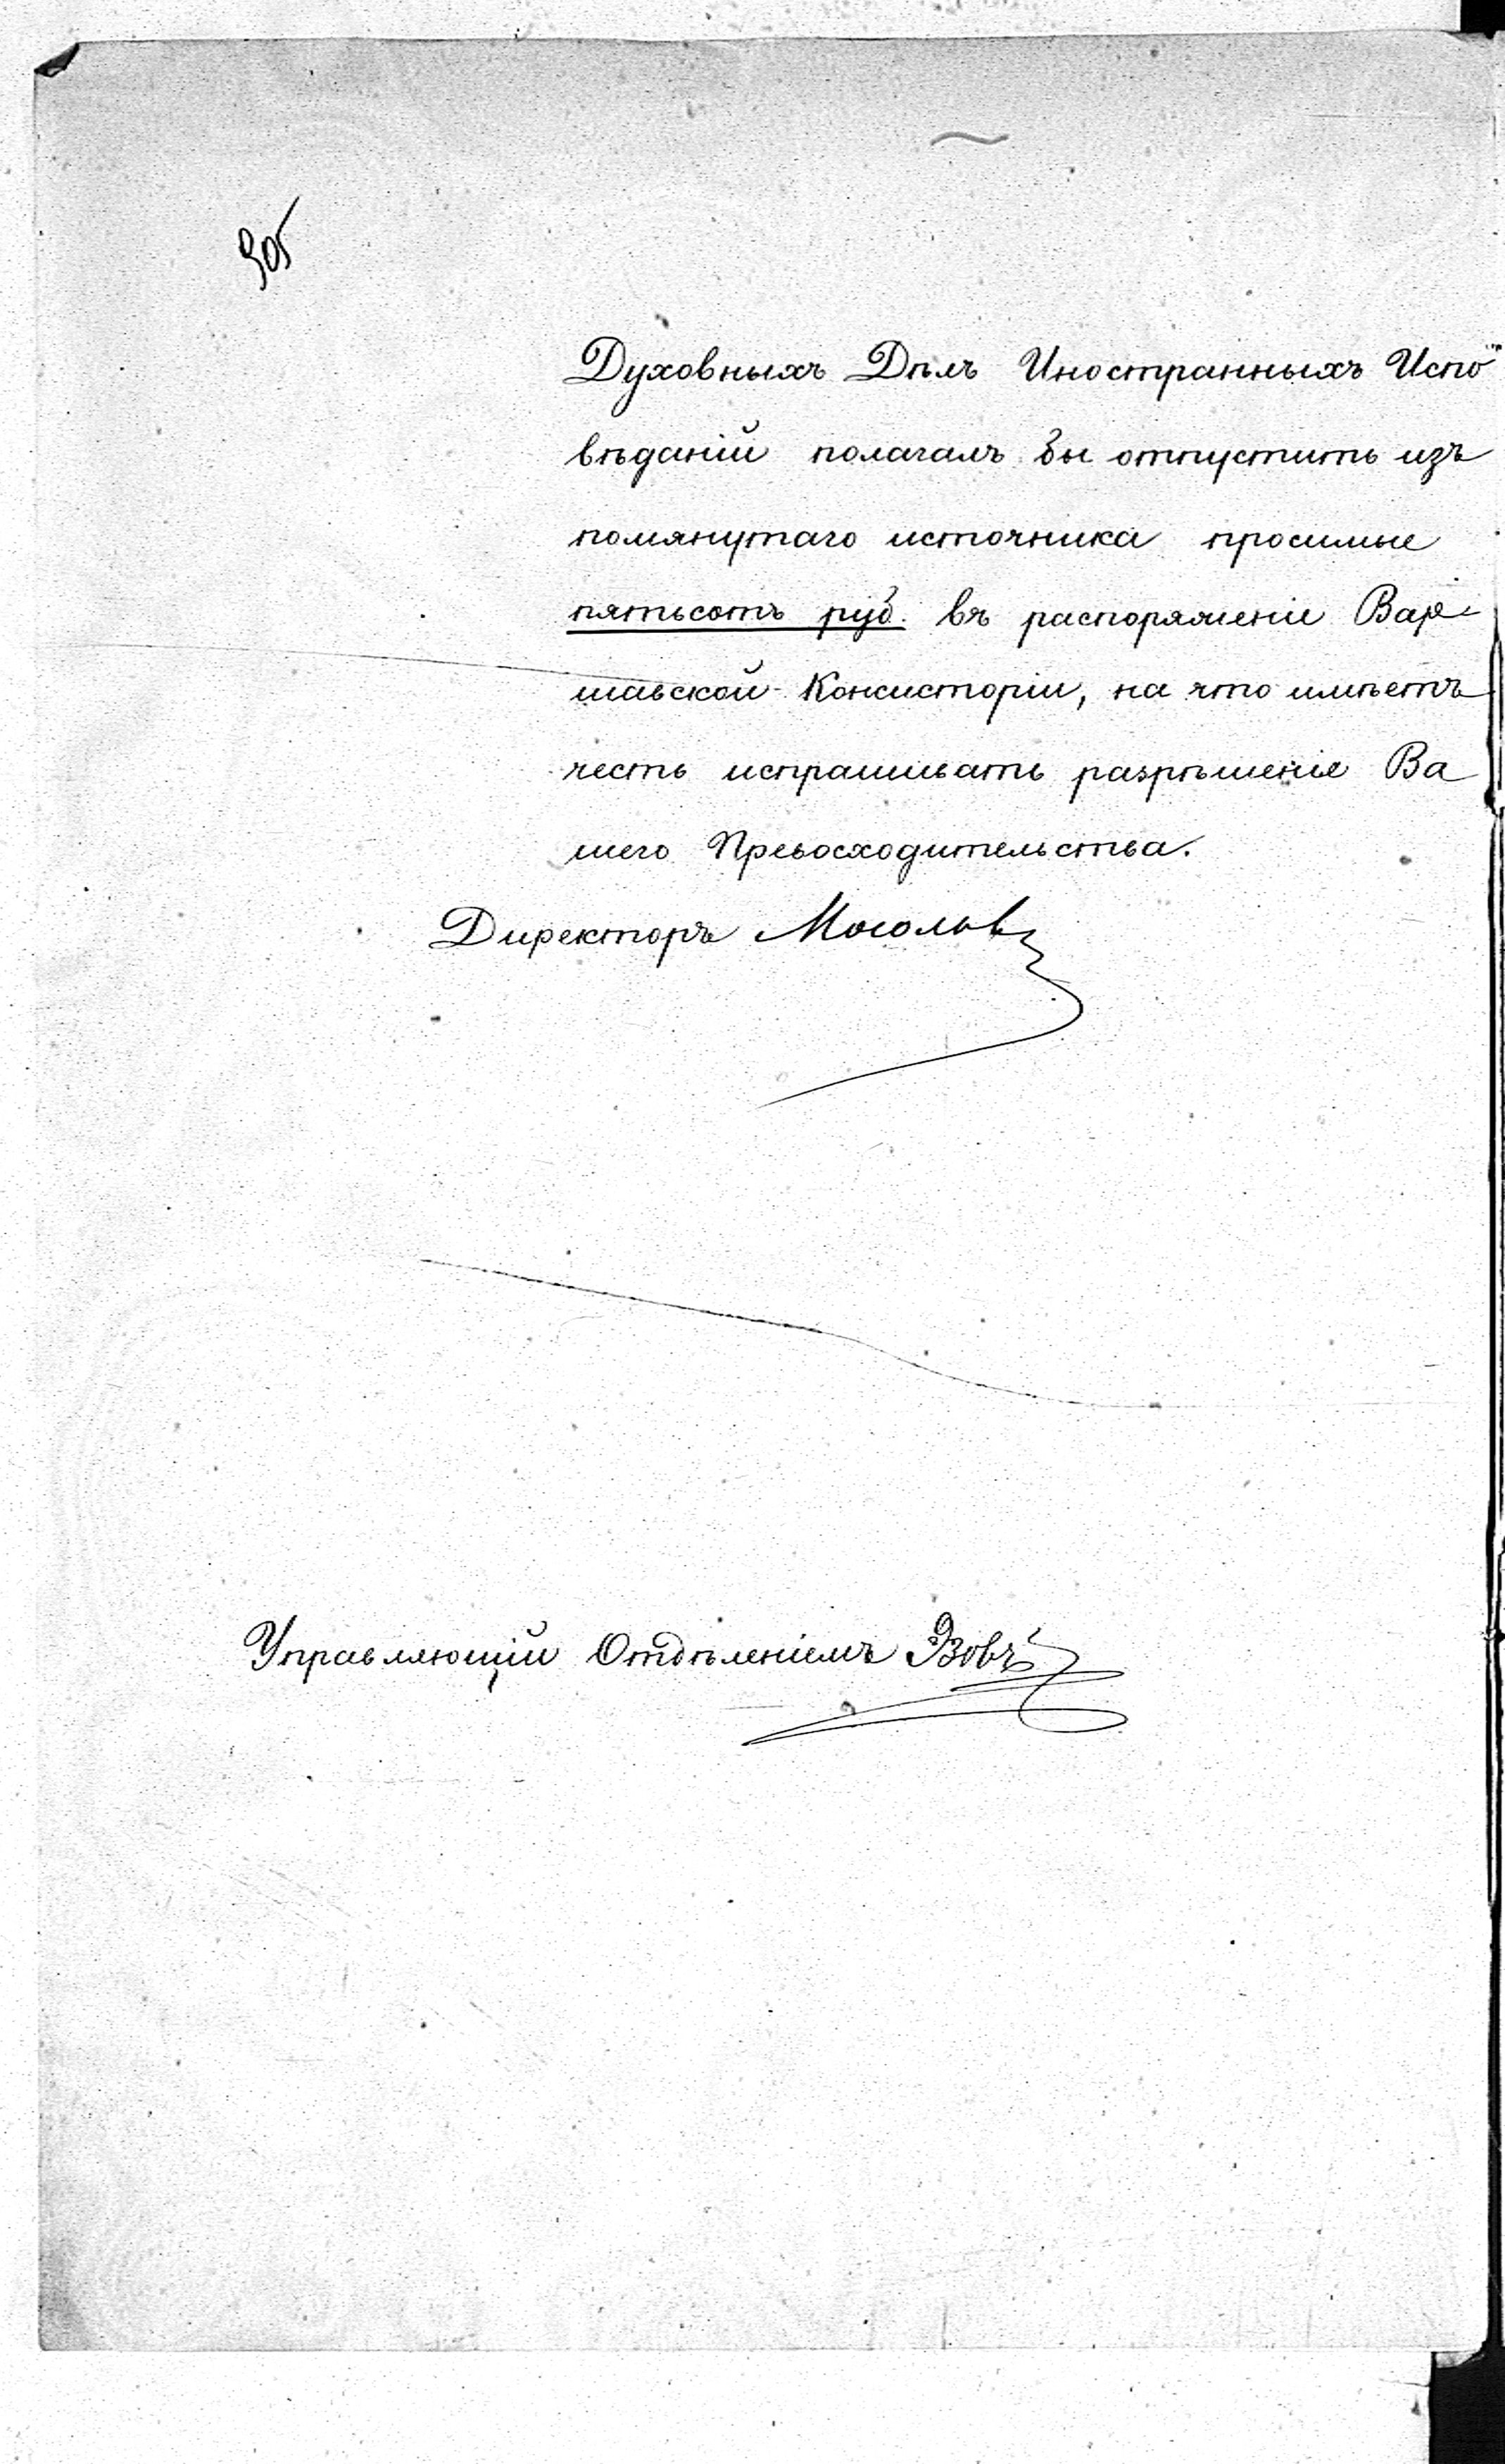 Духовныхъ Дѣлъ Иностранныхъ Испо
вѣданій полагалъ бы отпустить изъ
помянутаго источника просимые
пятьсотъ руб. въ распоряженіе Вар-
шавской Консисторіи, на что имѣетъ
честь испрашивать разрѣшеніе Ва
шего Превосходительства.
Директоръ Мосоловъ
Управляющій Отдѣленіемъ